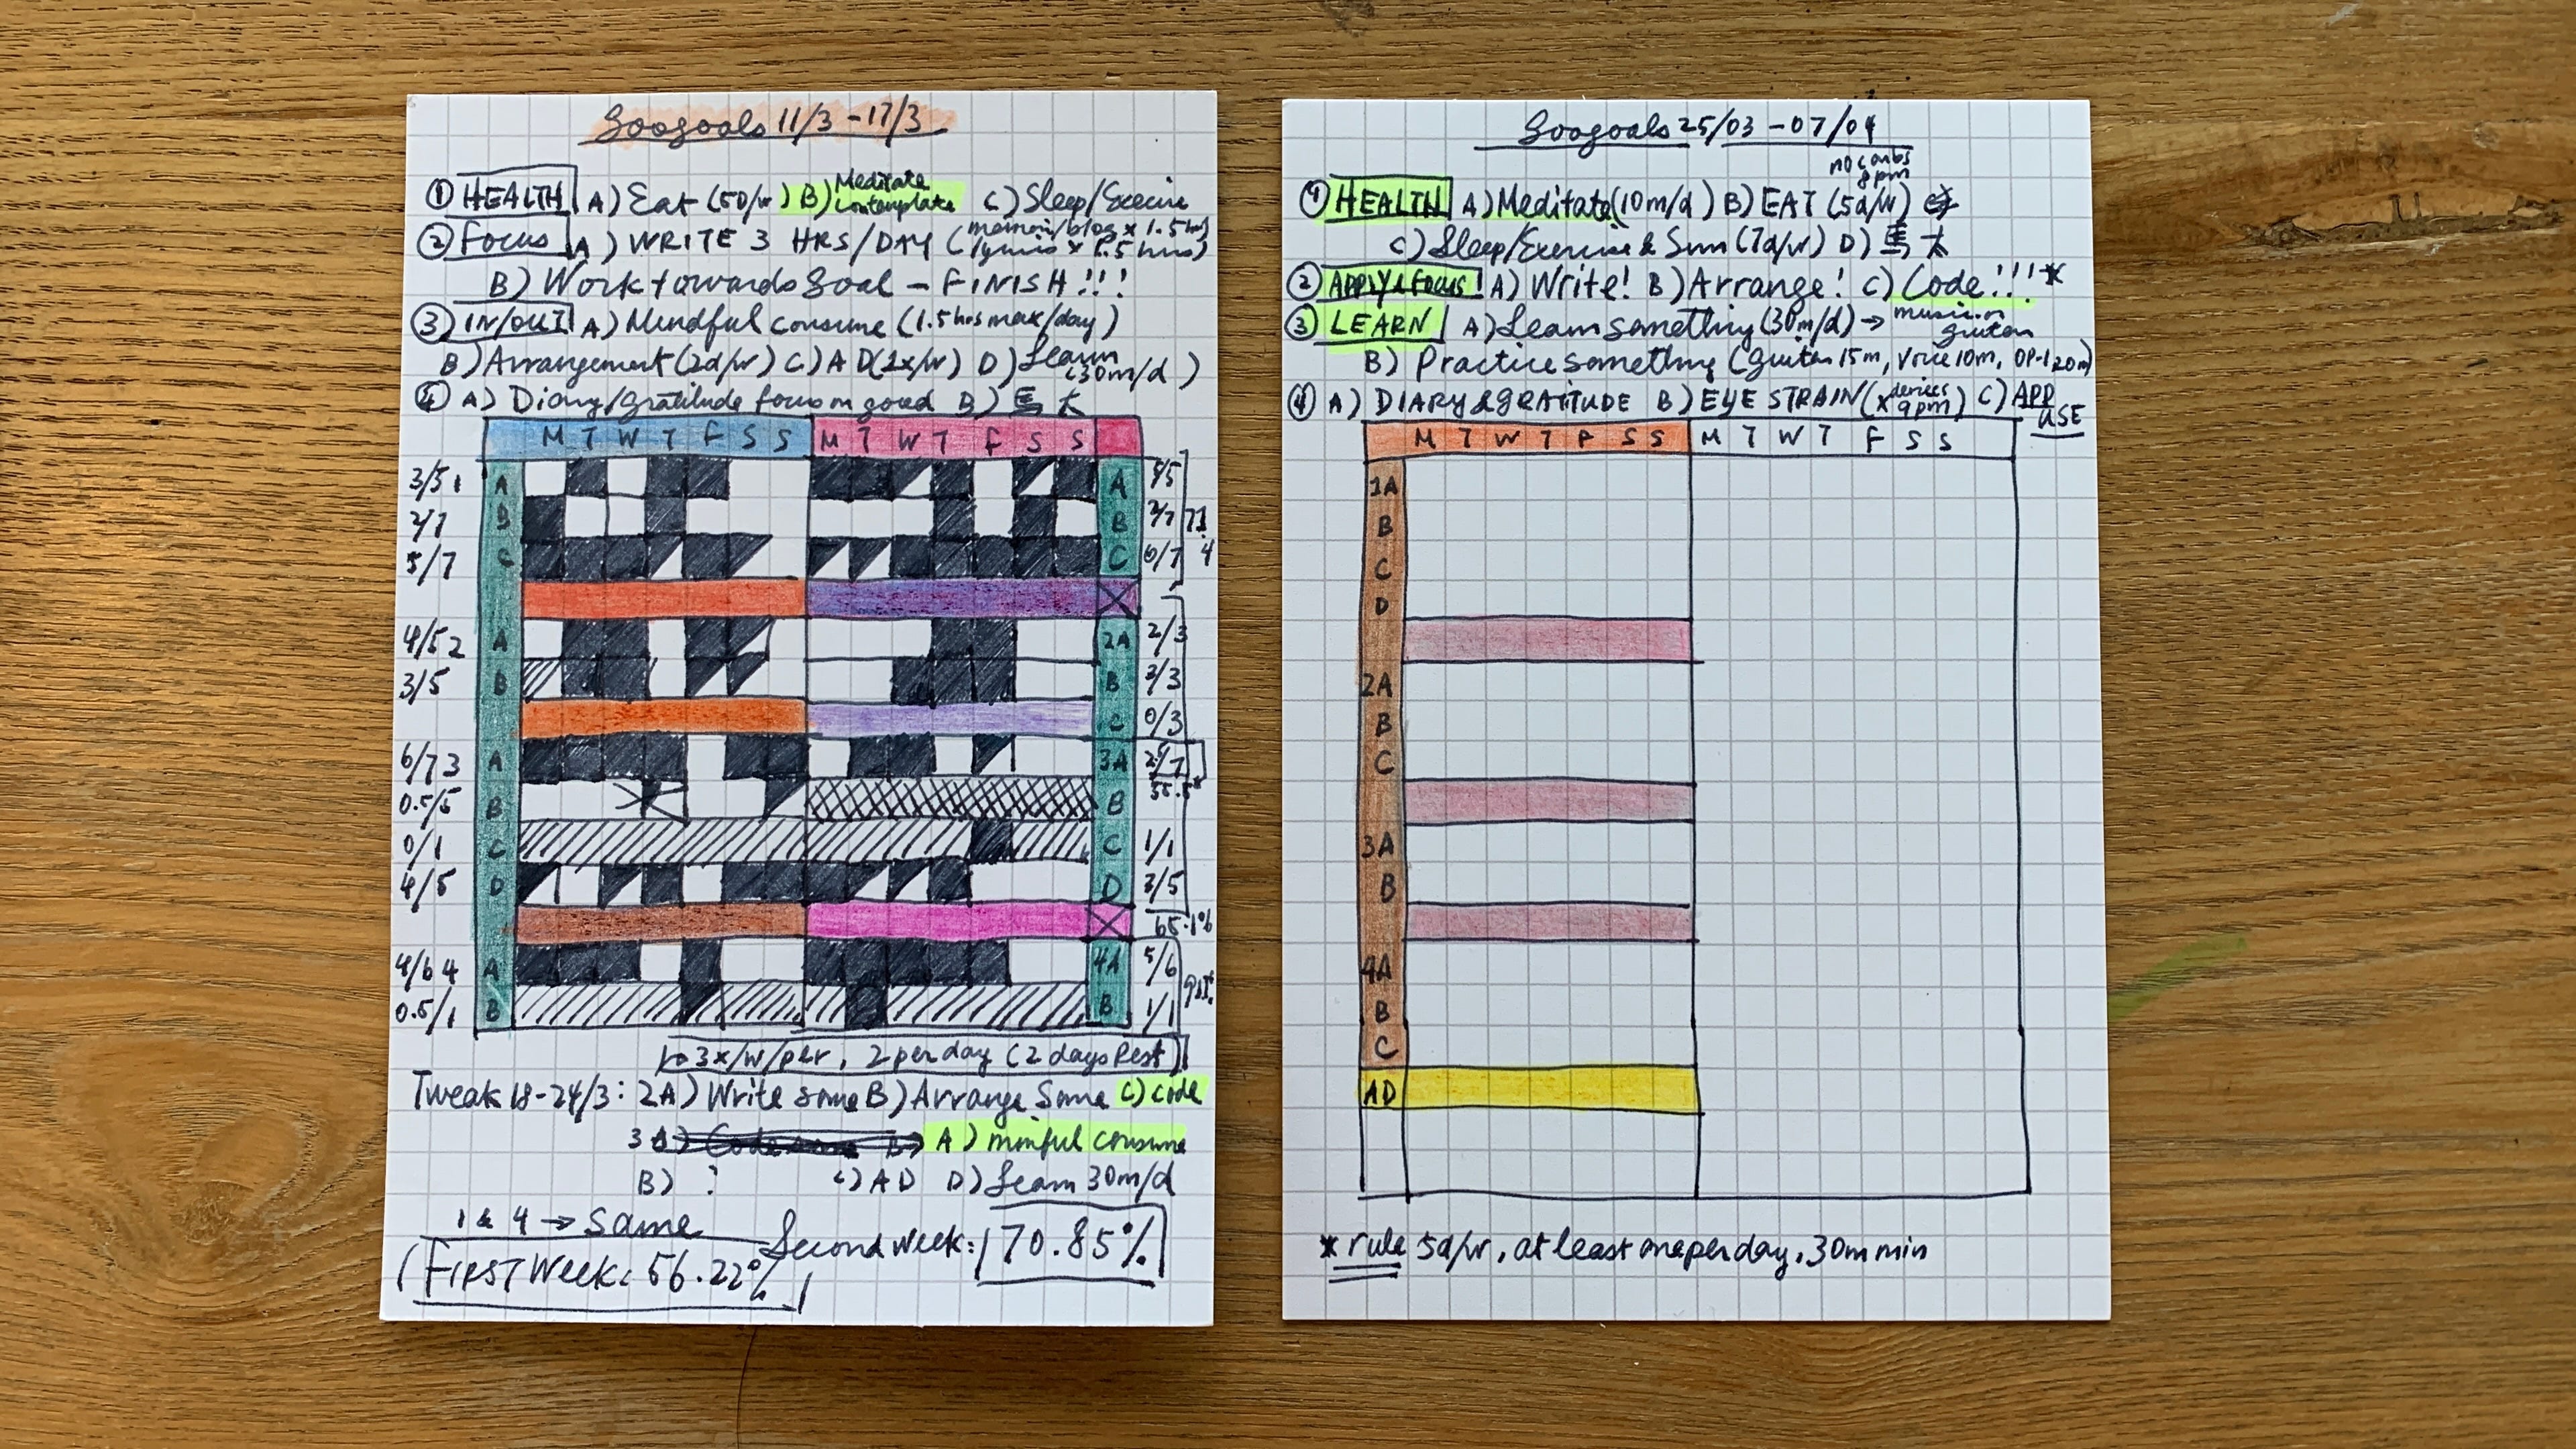 Goals 11/3 - 17/3
① HEALTH A) Eat (5D/w) B) Meditate contemplate C) Sleep/Exercise
② Focus A) WRITE 3 HRS/DAY (memoir/blog x 1.5 hrs lyrics x 1.5 hrs)
B) Work towards Goal - FINISH!!!
③ IN/OUT A) Mindful consume (1.5 hrs max/day)
B) Arrangement (2d/w) C) AD (1x/w) D) Learn (30m/d)
④ A) Diary/gratitude focus on good B)
M T W T F S S M T W T F S S
3/5 1 A A
2/7 B B 2/7 71.4
5/7 C C 6/7
4/5 2 A 2A 2/3
3/5 B B 3/3
C 0/3
6/7 3 A 3A
0.5/5 B B
0/1 C C 1/1
4/5 D D 3/5
65.1%
4/6 4 A 4A 5/6
0.5/1 B B 1/1
3x/w/per, 2 per day (2 days Rest)
Tweak 18-24/3: 2A) Write some B) Arrange Some C) code
3 A) minful consume
B) ? C) AD D) Learn 30m/d
1 & 4 → Same
First Week: 56.22%
Second week: 70.85%
Goals 25/03 - 07/04
① HEALTH A) Meditate (10m/d) B) EAT (5d/w) no carbs 8pm
C) Sleep/Exercise & Sun (7d/w) D)
② APPLY & FOCUS! A) Write! B) Arrange! C) Code!!! *
③ LEARN A) Learn something (30m/d) → music or guitar
B) Practice something (guitar 15m, Voice 10m, OP-1 20m)
④ A) DIARY & GRATITUDE B) EYE STRAIN (x devices 9pm) C) APP USE
M T W T F S S M T W T F S S
1A
B
C
D
2A
B
C
3A
B
4A
B
C
AD
* rule 5d/w, at least one per day, 30m min